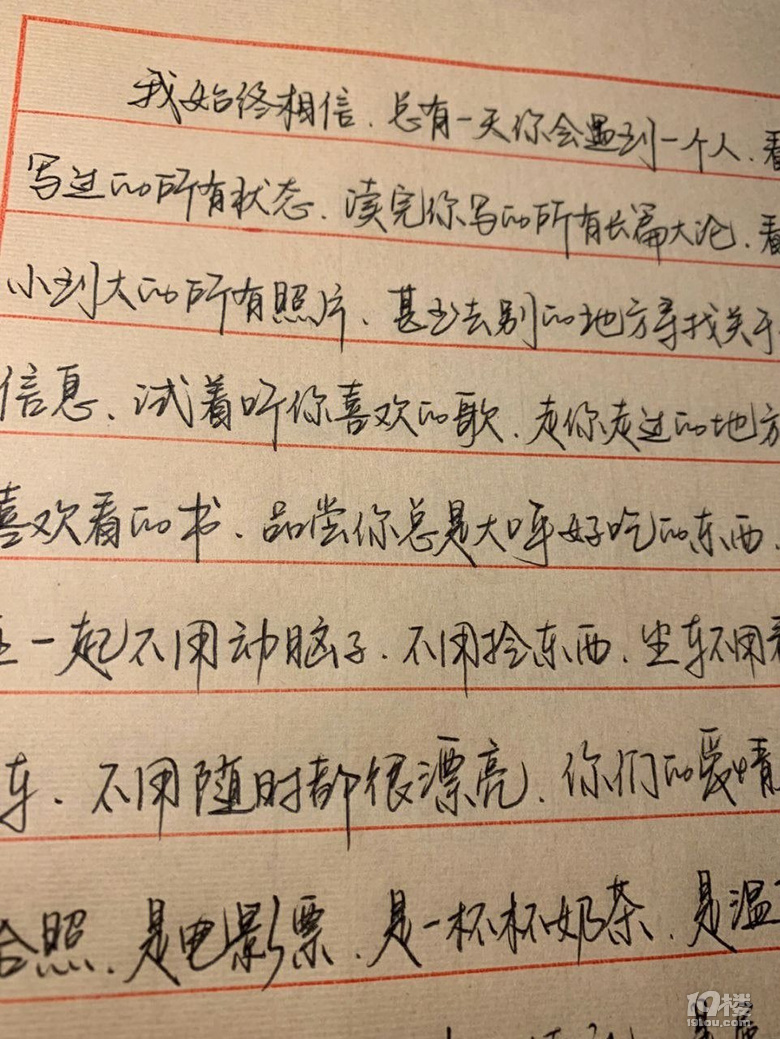 我始终相信、总有一天你会遇到一个人、看
写过的所有状态、读完你写的所有长篇大论、看
小到大的所有照片、甚至去别的地方寻找关于
信息、试着听你喜欢的歌、走你走过的地方
喜欢看的书、品尝你总是大呼好吃的东西、
一起不用动脑子、不用拎东西、坐车不用看
车、不用随时都很漂亮、你们的爱情
合照、是电影票、是一杯杯奶茶、是温
19楼
19lou.com